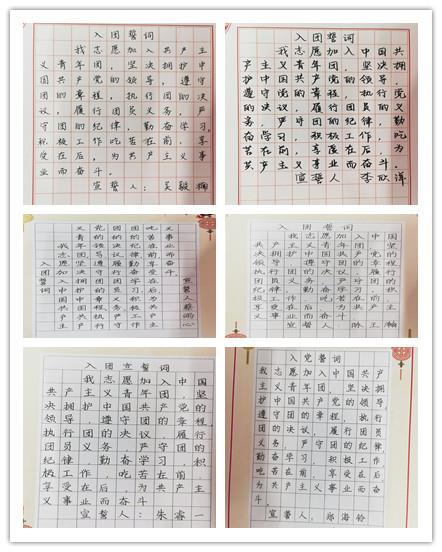 入团誓词
我志愿加入共产主
义青年团,坚决拥护中
国共产党的领导,遵守
团的章程,执行团的决
议,履行团员义务,严
守团的纪律,勤奋学习,
积极工作,吃苦在前,享
受在后,为共产主义事
业而奋斗。
宣誓人:吴毅楠
入团誓词
我志愿加入中国共
产主义青年团,坚决拥
护中国共产党的领导,
遵守团的章程,执行团
的决议,履行团员义
务,严守团的纪律,勤
奋学习,积极工作,吃
苦在前,享受在后,为
共产主义事业而奋斗。
宣誓人 李欣洋
入团誓词
我志愿加入中国共产主
义青年团坚决拥护中国共产
党的领导遵守团的章程执行
团的决议履行团员义务严守
团的纪律勤奋学习积极工作
吃苦在前享受在后为共产主
义事业而奋斗
宣誓人蔡
入团誓词
我志愿加入中国
共产主义青年团,坚
决拥护中国共产党的
领导,遵守团的章程,
执行团的决议,履行
团员义务,严守团的
纪律,勤奋学习,积
极工作,吃苦在前,
享受在后,为共产主
义事业而奋斗
入团宣誓词
我志愿加入中国
共产主义青年团,坚
决拥护中国共产党的
领导,遵守团的章程,
执行团的决议,履行
团员义务,严守团的
纪律,勤奋学习,积
极工作,吃苦在前,
享受在后,为共产主
义事业而奋斗
宣誓人:朱睿一
入党誓词
我志愿加入中国共产
主义青年团,坚决拥
护中国共产党的领导,
遵守团的章程,执行
团的决议,履行团员
义务,严守团的纪律,
勤奋学习,积极工作,
吃苦在前,享受在后,
为共产主义事业而奋
斗。
宣誓人:郑海铃